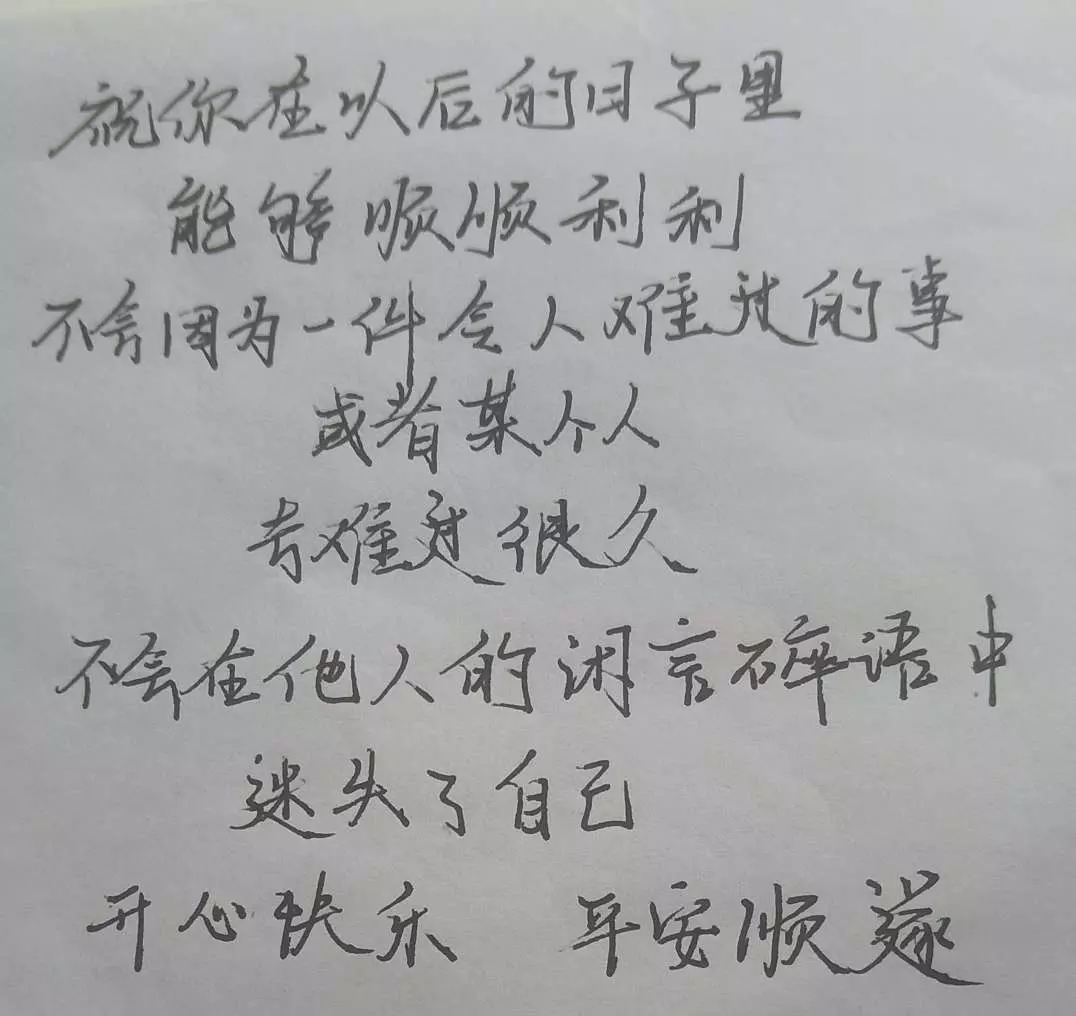 祝你在以后的日子里
能够顺顺利利
不会因为一件令人难过的事
或者某个人
去难过很久
不会在他人的闲言碎语中
迷失了自己
开心快乐 平安顺遂